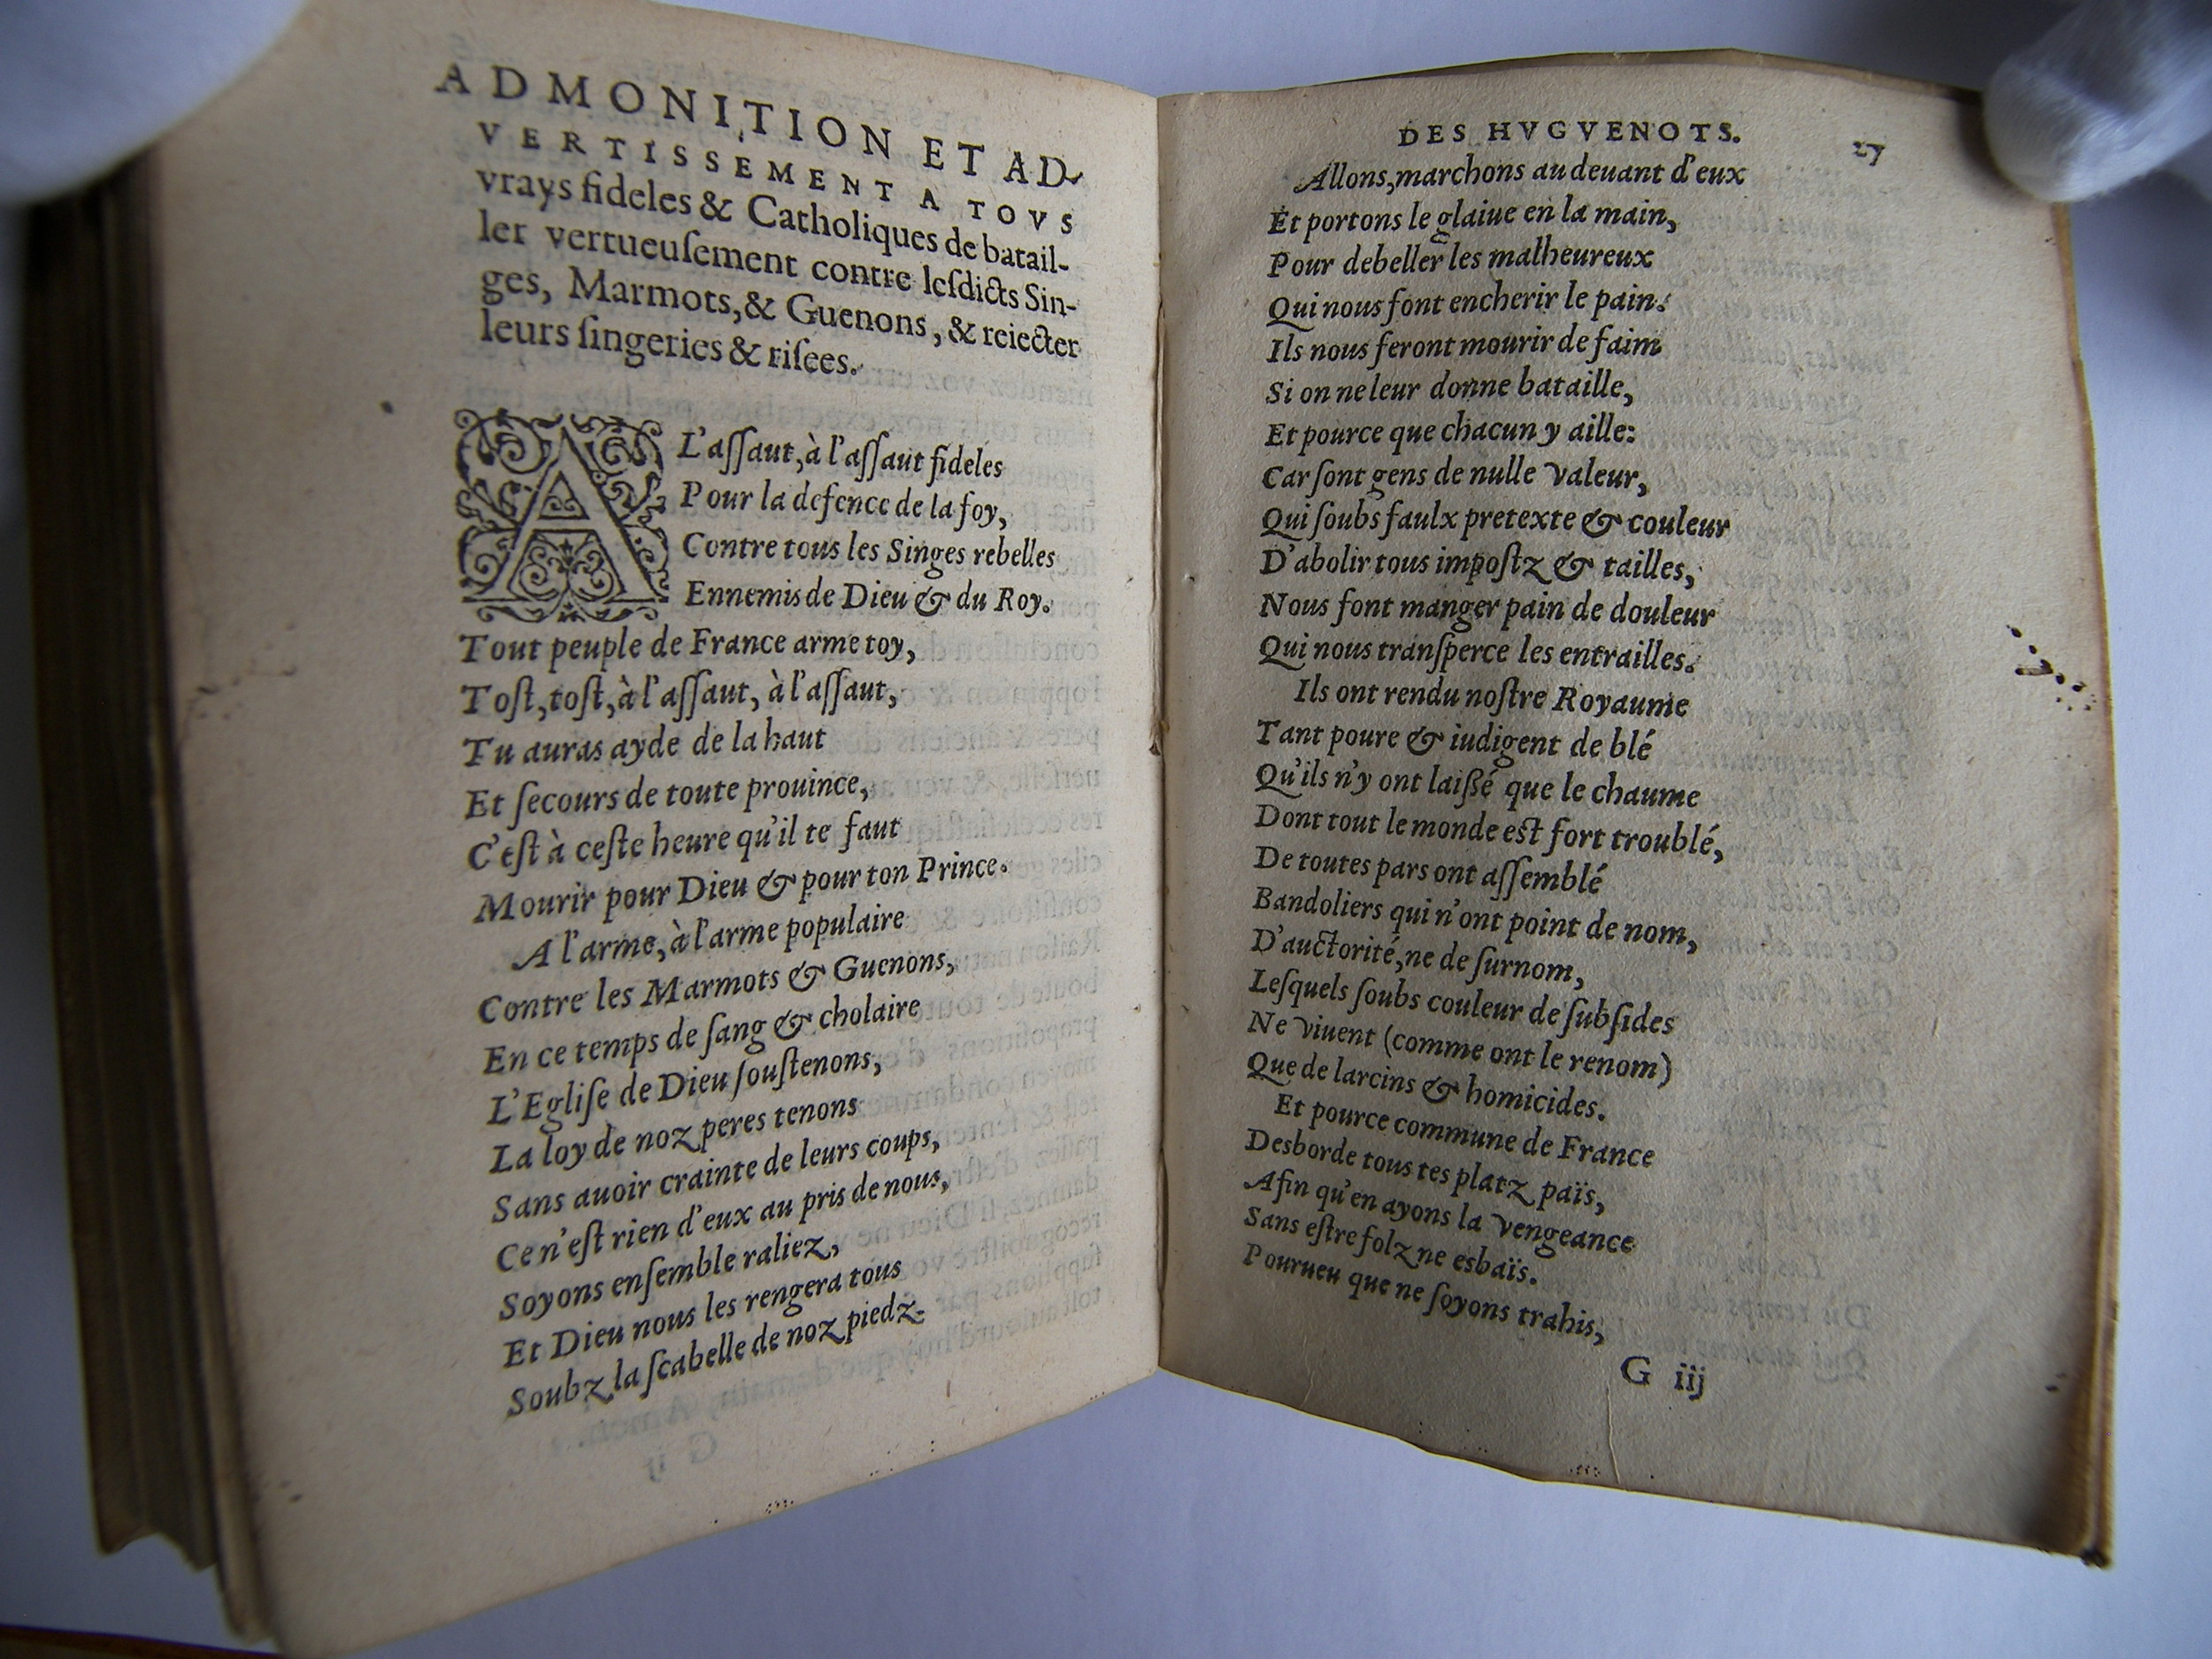 ADMONITION ET AD-
VERTISSEMENT A TOVS
vrays fideles & Catholiques de batail-
ler vertueuſement contre leſdicts Sin-
ges, Marmots, & Guenons, & reiecter
leurs ſingeries & riſees.
A L'aſſaut, à l'aſſaut fideles
Pour la defence de la foy,
Contre tous les Singes rebelles
Ennemis de Dieu & du Roy.
Tout peuple de France arme toy,
Toſt, toſt, à l'aſſaut, à l'aſſaut,
Tu auras ayde de la haut
Et ſecours de toute prouince,
C'eſt à ceſte heure qu'il te faut
Mourir pour Dieu & pour ton Prince.
A l'arme, à l'arme populaire
Contre les Marmots & Guenons,
En ce temps de ſang & cholaire
L'Egliſe de Dieu ſouſtenons,
La loy de noz peres tenons
Sans auoir crainte de leurs coups,
Ce n'eſt rien d'eux au pris de nous,
Soyons enſemble raliez,
Et Dieu nous les rengera tous
Soubz la ſcabelle de noz piedz.
DES HVGVENOTS. 27
Allons, marchons au deuant d'eux
Et portons le glaiue en la main,
Pour debeller les malheureux
Qui nous font encherir le pain.
Ils nous feront mourir de faim
Si on ne leur donne bataille,
Et pource que chacun y aille:
Car ſont gens de nulle valeur,
Qui ſoubs faulx pretexte & couleur
D'abolir tous impoſtz & tailles,
Nous font manger pain de douleur
Qui nous tranſperce les entrailles.
Ils ont rendu noſtre Royaume
Tant poure & iudigent de blé
Qu'ils n'y ont laiſſé que le chaume
Dont tout le monde eſt fort troublé,
De toutes pars ont aſſemblé
Bandoliers qui n'ont point de nom,
D'auctorité, ne de ſurnom,
Leſquels ſoubs couleur de ſubſides
Ne viuent (comme ont le renom)
Que de larcins & homicides.
Et pource commune de France
Desborde tous tes platz païs,
Afin qu'en ayons la vengeance
Sans eſtre folz ne esbaïs.
Pourueu que ne ſoyons trahis,
G iij